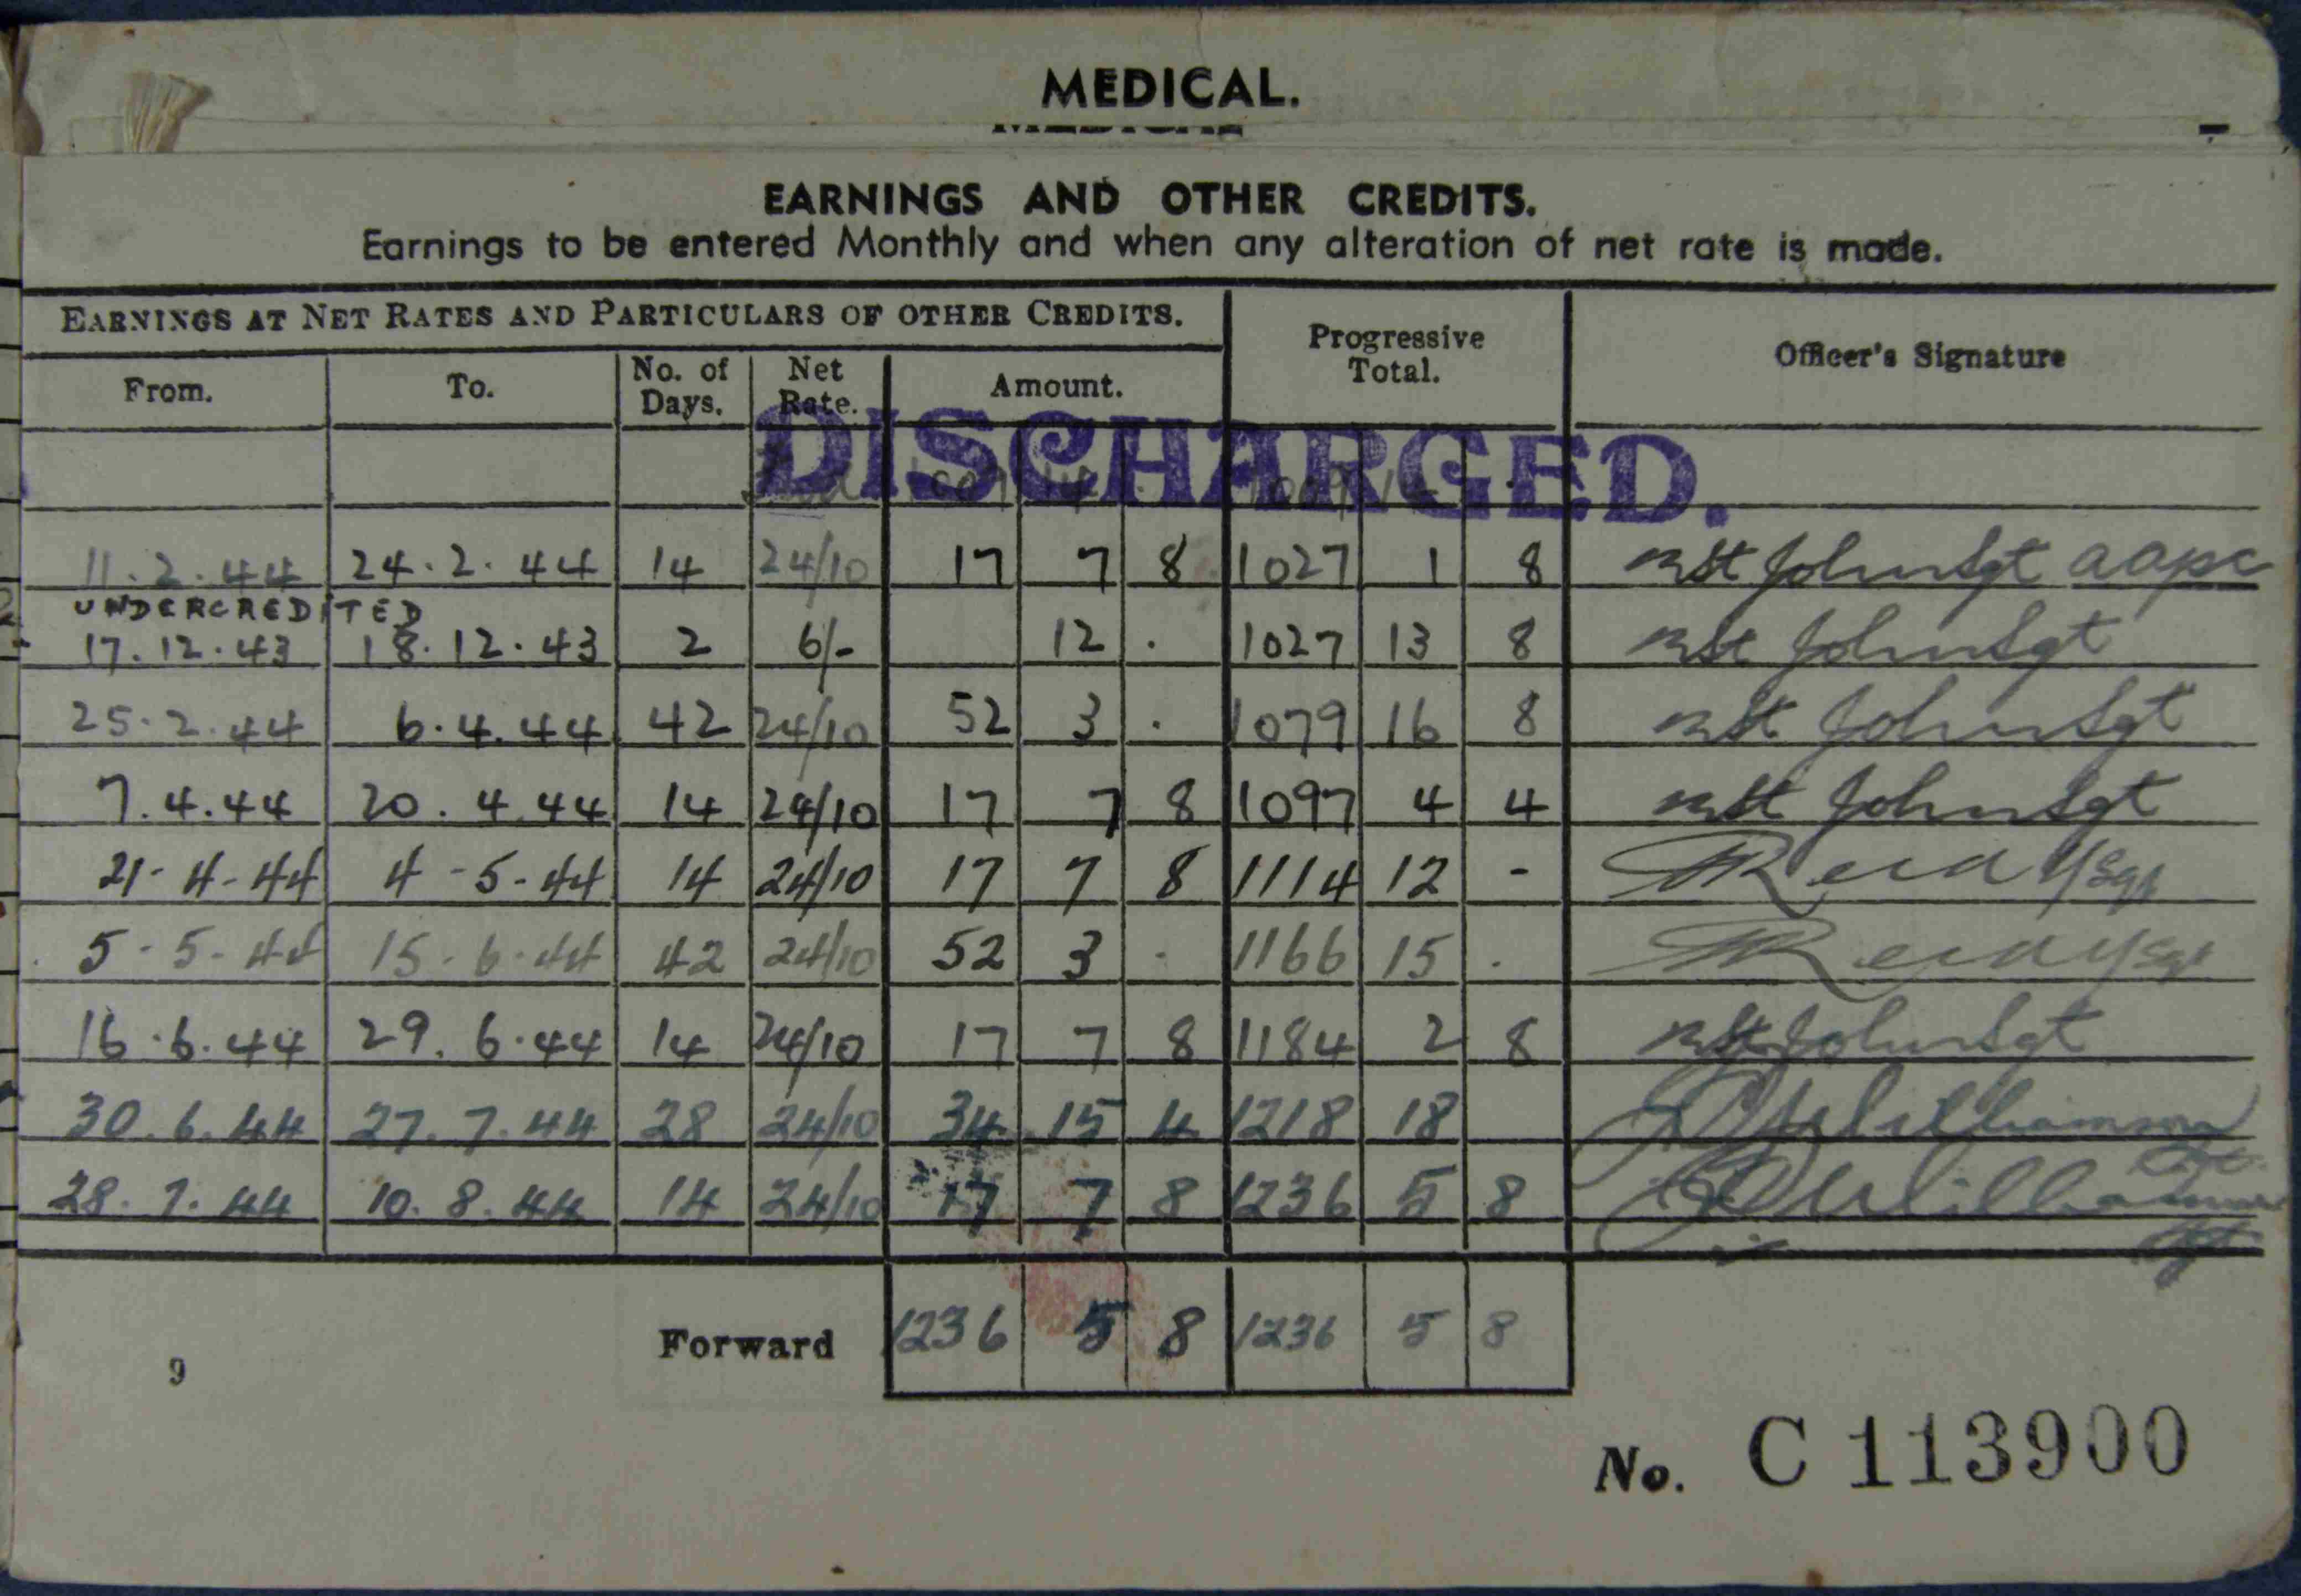 MEDICAL.
EARNINGS AND OTHER CREDITS.
Earnings to be entered Monthly and when any alteration of net rate is made.
EARNINGS AT NET RATES AND PARTICULARS OF OTHER CREDITS. Progressive Total. Officer's Signature
From. To. No. of Days. Net Rate. Amount.
DISCHARGED.
1009 14 . 1009 14 .
11.2.44 24.2.44 14 24/10 17 7 8 1027 1 8 St John Sgt aapc
UNDERCREDITED
17.12.43 18.12.43 2 6/- 12 . 1027 13 8 St John Sgt
25.2.44 6.4.44 42 24/10 52 3 . 1079 16 8 St John Sgt
7.4.44 20.4.44 14 24/10 17 7 8 1097 4 4 St John Sgt
21-4-44 4-5-44 14 24/10 17 7 8 1114 12 -
5-5-44 15-6-44 42 24/10 52 3 . 1166 15 .
16.6.44 29.6.44 14 24/10 17 7 8 1184 2 8 St John Sgt
30.6.44 27.7.44 28 24/10 34 15 4 1218 18 Williamson
28.7.44 10.8.44 14 24/10 17 7 8 1236 5 8 Williamson
Sgt
Forward 1236 5 8 1236 5 8
9
No. C 113900